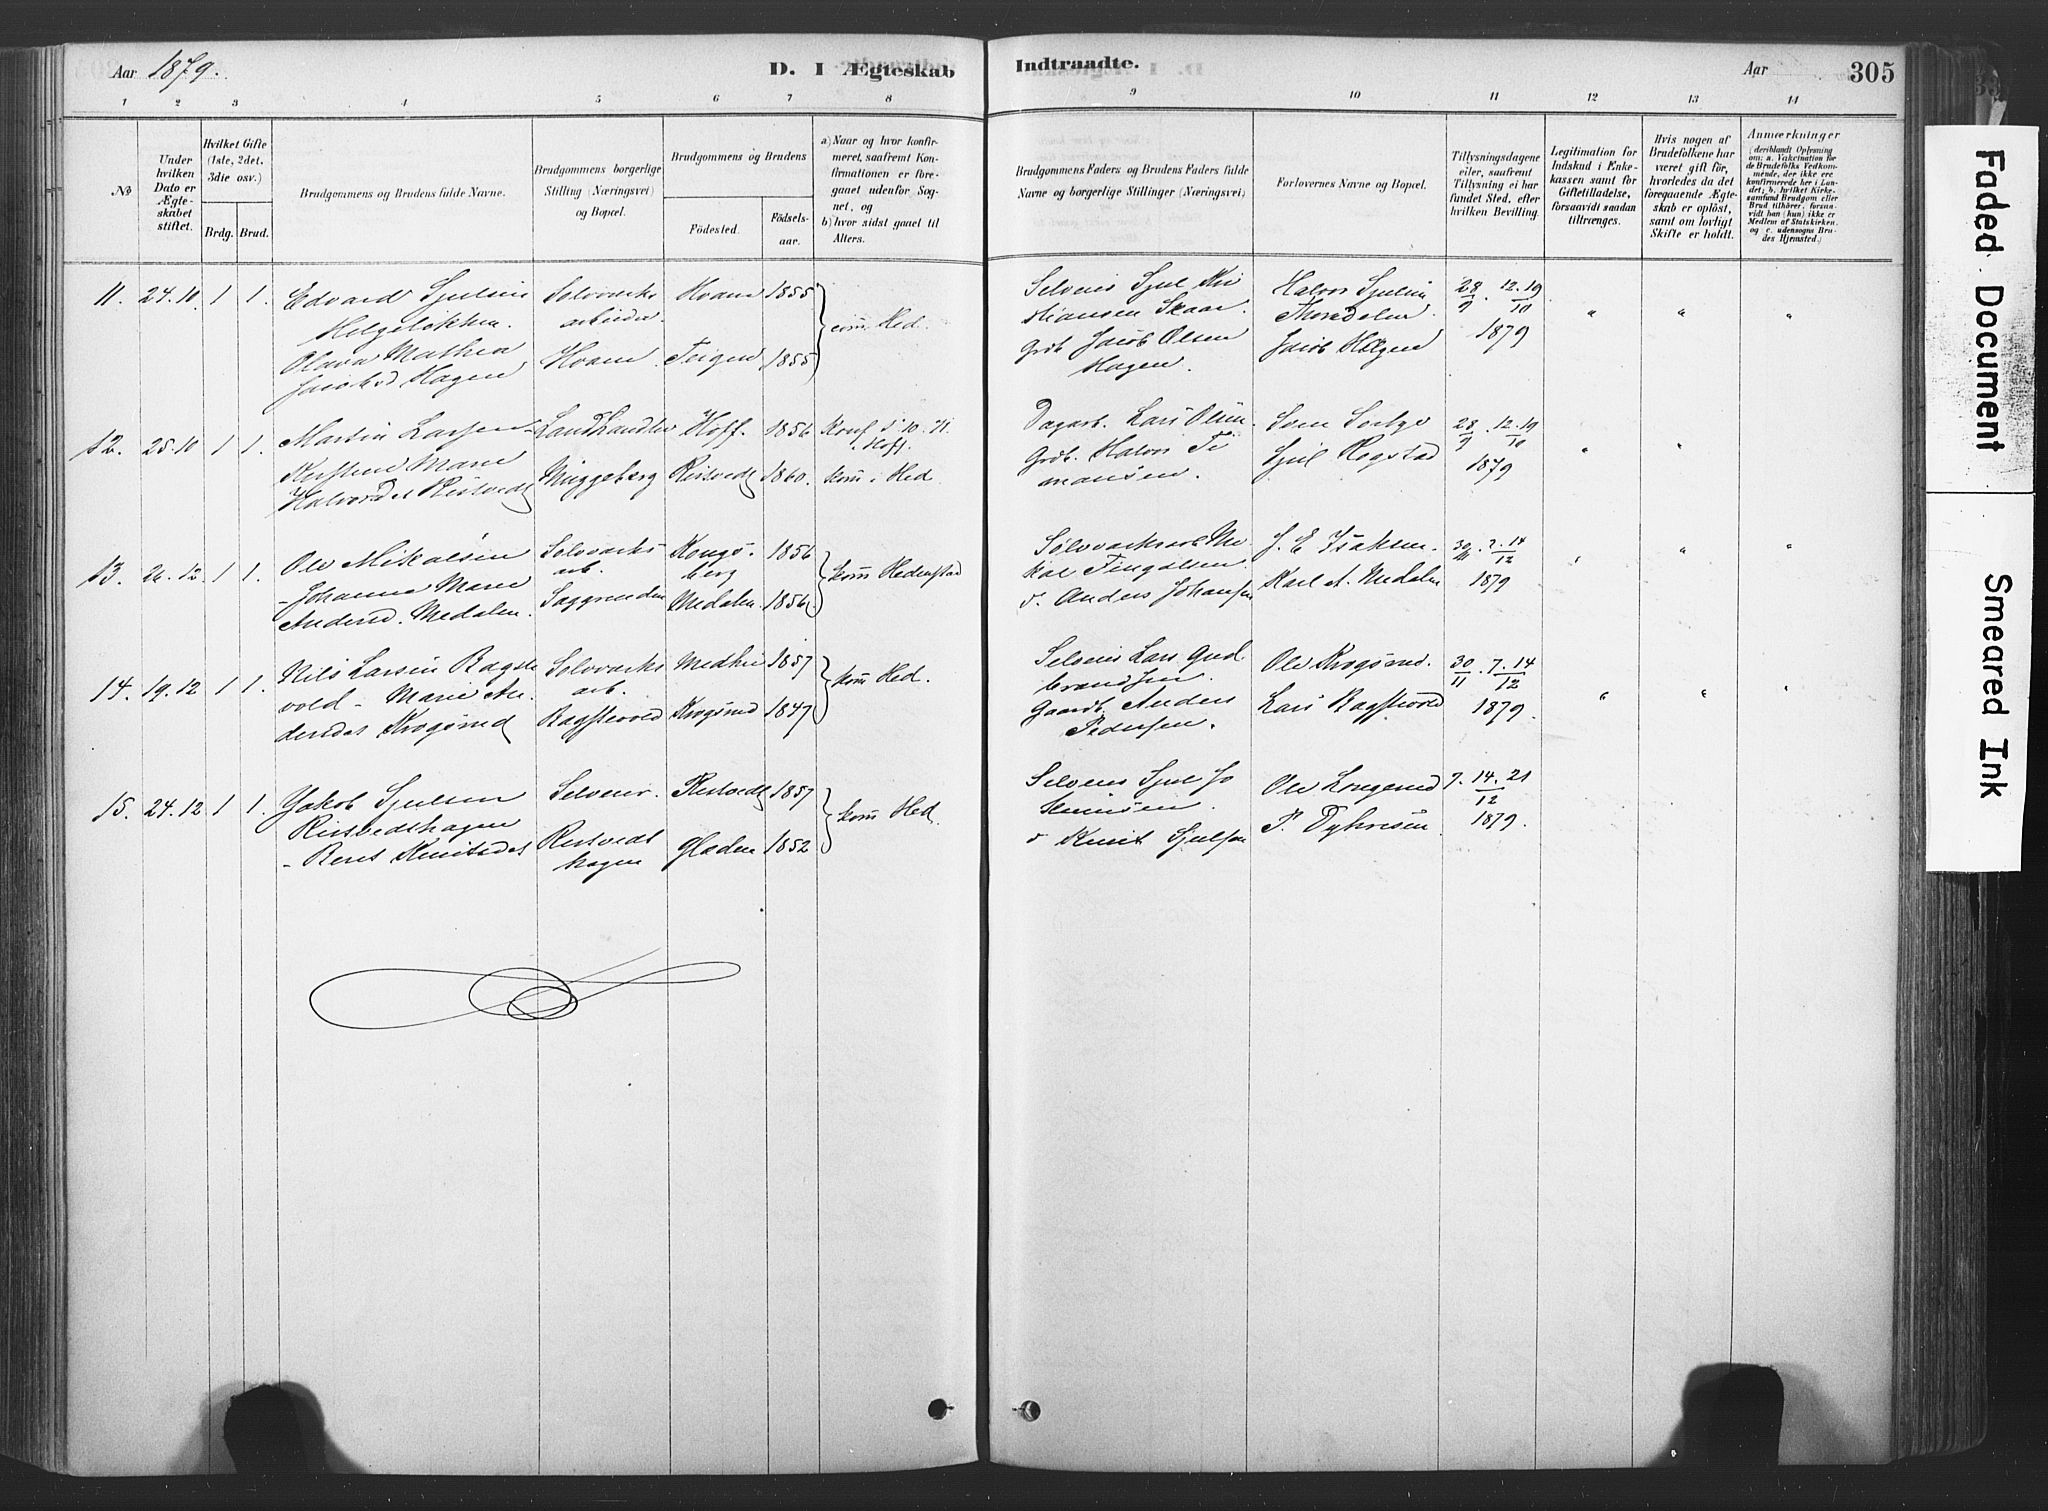 Aar 1879.
D. I Ægteskab
Indtraadte.
Aar
305
1 2 3 4 5 6 7 8
9 10 11 12 13 14
№
Under hvilken Dato er Ægteskabet stiftet.
Hvilket Gifte (1ste, 2det, 3die osv.)
Brdg. Brud.
Brudgommens og Brudens fulde Navne.
Brudgommens borgerlige Stilling (Næringsvei) og Bopæl.
Brudgommens og Brudens
Fødested.
Fødselsaar.
a) Naar og hvor konfirmeret, saafremt Konfirmationen er foregaaet udenfor Sognet, og
b) hvor sidst gaaet til Alters.
Brudgommens Faders og Brudens Faders fulde Navne og borgerlige Stillinger (Næringsvei)
Forlovernes Navne og Bopæl.
Tillysningsdagene eller, saafremt Tillysning ei har fundet Sted, efter hvilken Bevilling.
Legitimation for Indskud i Enkekassen samt for Giftetilladelse, forsaavidt saadan tiltrænges.
Hvis nogen af Brudefolkene har været gift før, hvorledes da det foregaaende Ægteskab er opløst, samt om lovligt Skifte er holdt.
Anmærkninger
(deriblandt Oplysning om: a. Vakcination for de Brudefolks Vedkommende, der ikke ere konfirmerede her i Landet; b. hvilket Kirkesamfund Brudgom eller Brud tilhører, forsaavidt han (hun) ikke er Medlem af Statskirken, og c. udensogns Brudes Hjemsted.)
11. 24.10 1 1. Edvard Sjulsen Sølvværks Hvam 1855
Helgeløkken. arbeider. com. Hed.
Olava Mathea Hvam. Teigen 1855
Jacobsd Hagen
Selveier Sjul Kri Halvor Sjulsen 28/9. 12. 19/10
stiansen Skaar. 1879
Grdb. Jacob Olsen Jacob Hagen
Hagen.
12. 25.10 1 1. Martin Larsen Landhandler Hoff. 1856 Konf 8/10. 71.
Hoff.
Kirstine Marie Muggeberg Ristvedt 1860. kom. i Hed
Halvorsdt Ristvedt
Dagarb. Lars Olsen 28/9. 12. 19/10
Grdb. Halvor Ti Sjul Kogstad 1879
mansen.
13. 26.12 1 1. Ole Mikalsen Sølvværks Kongs- 1856
arb. berg kom Hedenstad
- Johanne Marie Saggrenden Medalen. 1856
Andersd. Medalen.
Sølvværksarb. Mi J. E. Isaksen. 30/11. 7. 14/12
kal Tingolsen
v. Anders Johansen Karl A. Medalen 1879
14. 19.12 1 1. Nils Larsen Ragste Sølvværks 1857
vold - Marie An arb. kom Hed.
dersdet Krogsrud Ragstevold Krogsrud 1847
Selveier Lars Gud Ole Krogsrud. 30/11. 7. 14/12
brandsen
Gaardb. Anders Lars Ragstevold 1879.
Pedersen.
15. 24.12 1 1. Jakob Sjulsen Selveier. Ristvedt 1857
Ristvedthagen kom Hed.
- Beret Knutsdet Ristvedt Gladen 1852
hagen
Selveier Sjul Jo Ole Longerud 7. 14. 21/12
v Knut Sjulsen P. Dyhresen. 1879.
Faded Document
Smeared Ink